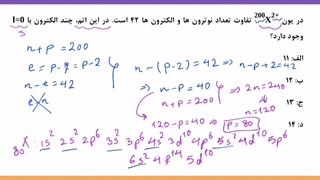 در یون ²⁰⁰X²⁺ تفاوت تعداد نوترون ها و الکترون ها ۴۲ است. در این اتم، چند الکترون با l=0
وجود دارد؟
S
n+p=200
e=p-2=p-2
n-e=42
e<n
n-(p-2)=42 → n-p+2=42
→ n-p=40
2n=240
120-p=40 → p=80
n=120
الف: ۱۱
ب: ۱۲
ج: ۱۳
د: ۱۴
80X: 1s² 2s² 2p⁶ 3s² 3p⁶ 4s² 3d¹⁰ 4p⁶ 5s² 4d¹⁰ 5p⁶
6s² 4f¹⁴ 5d¹⁰